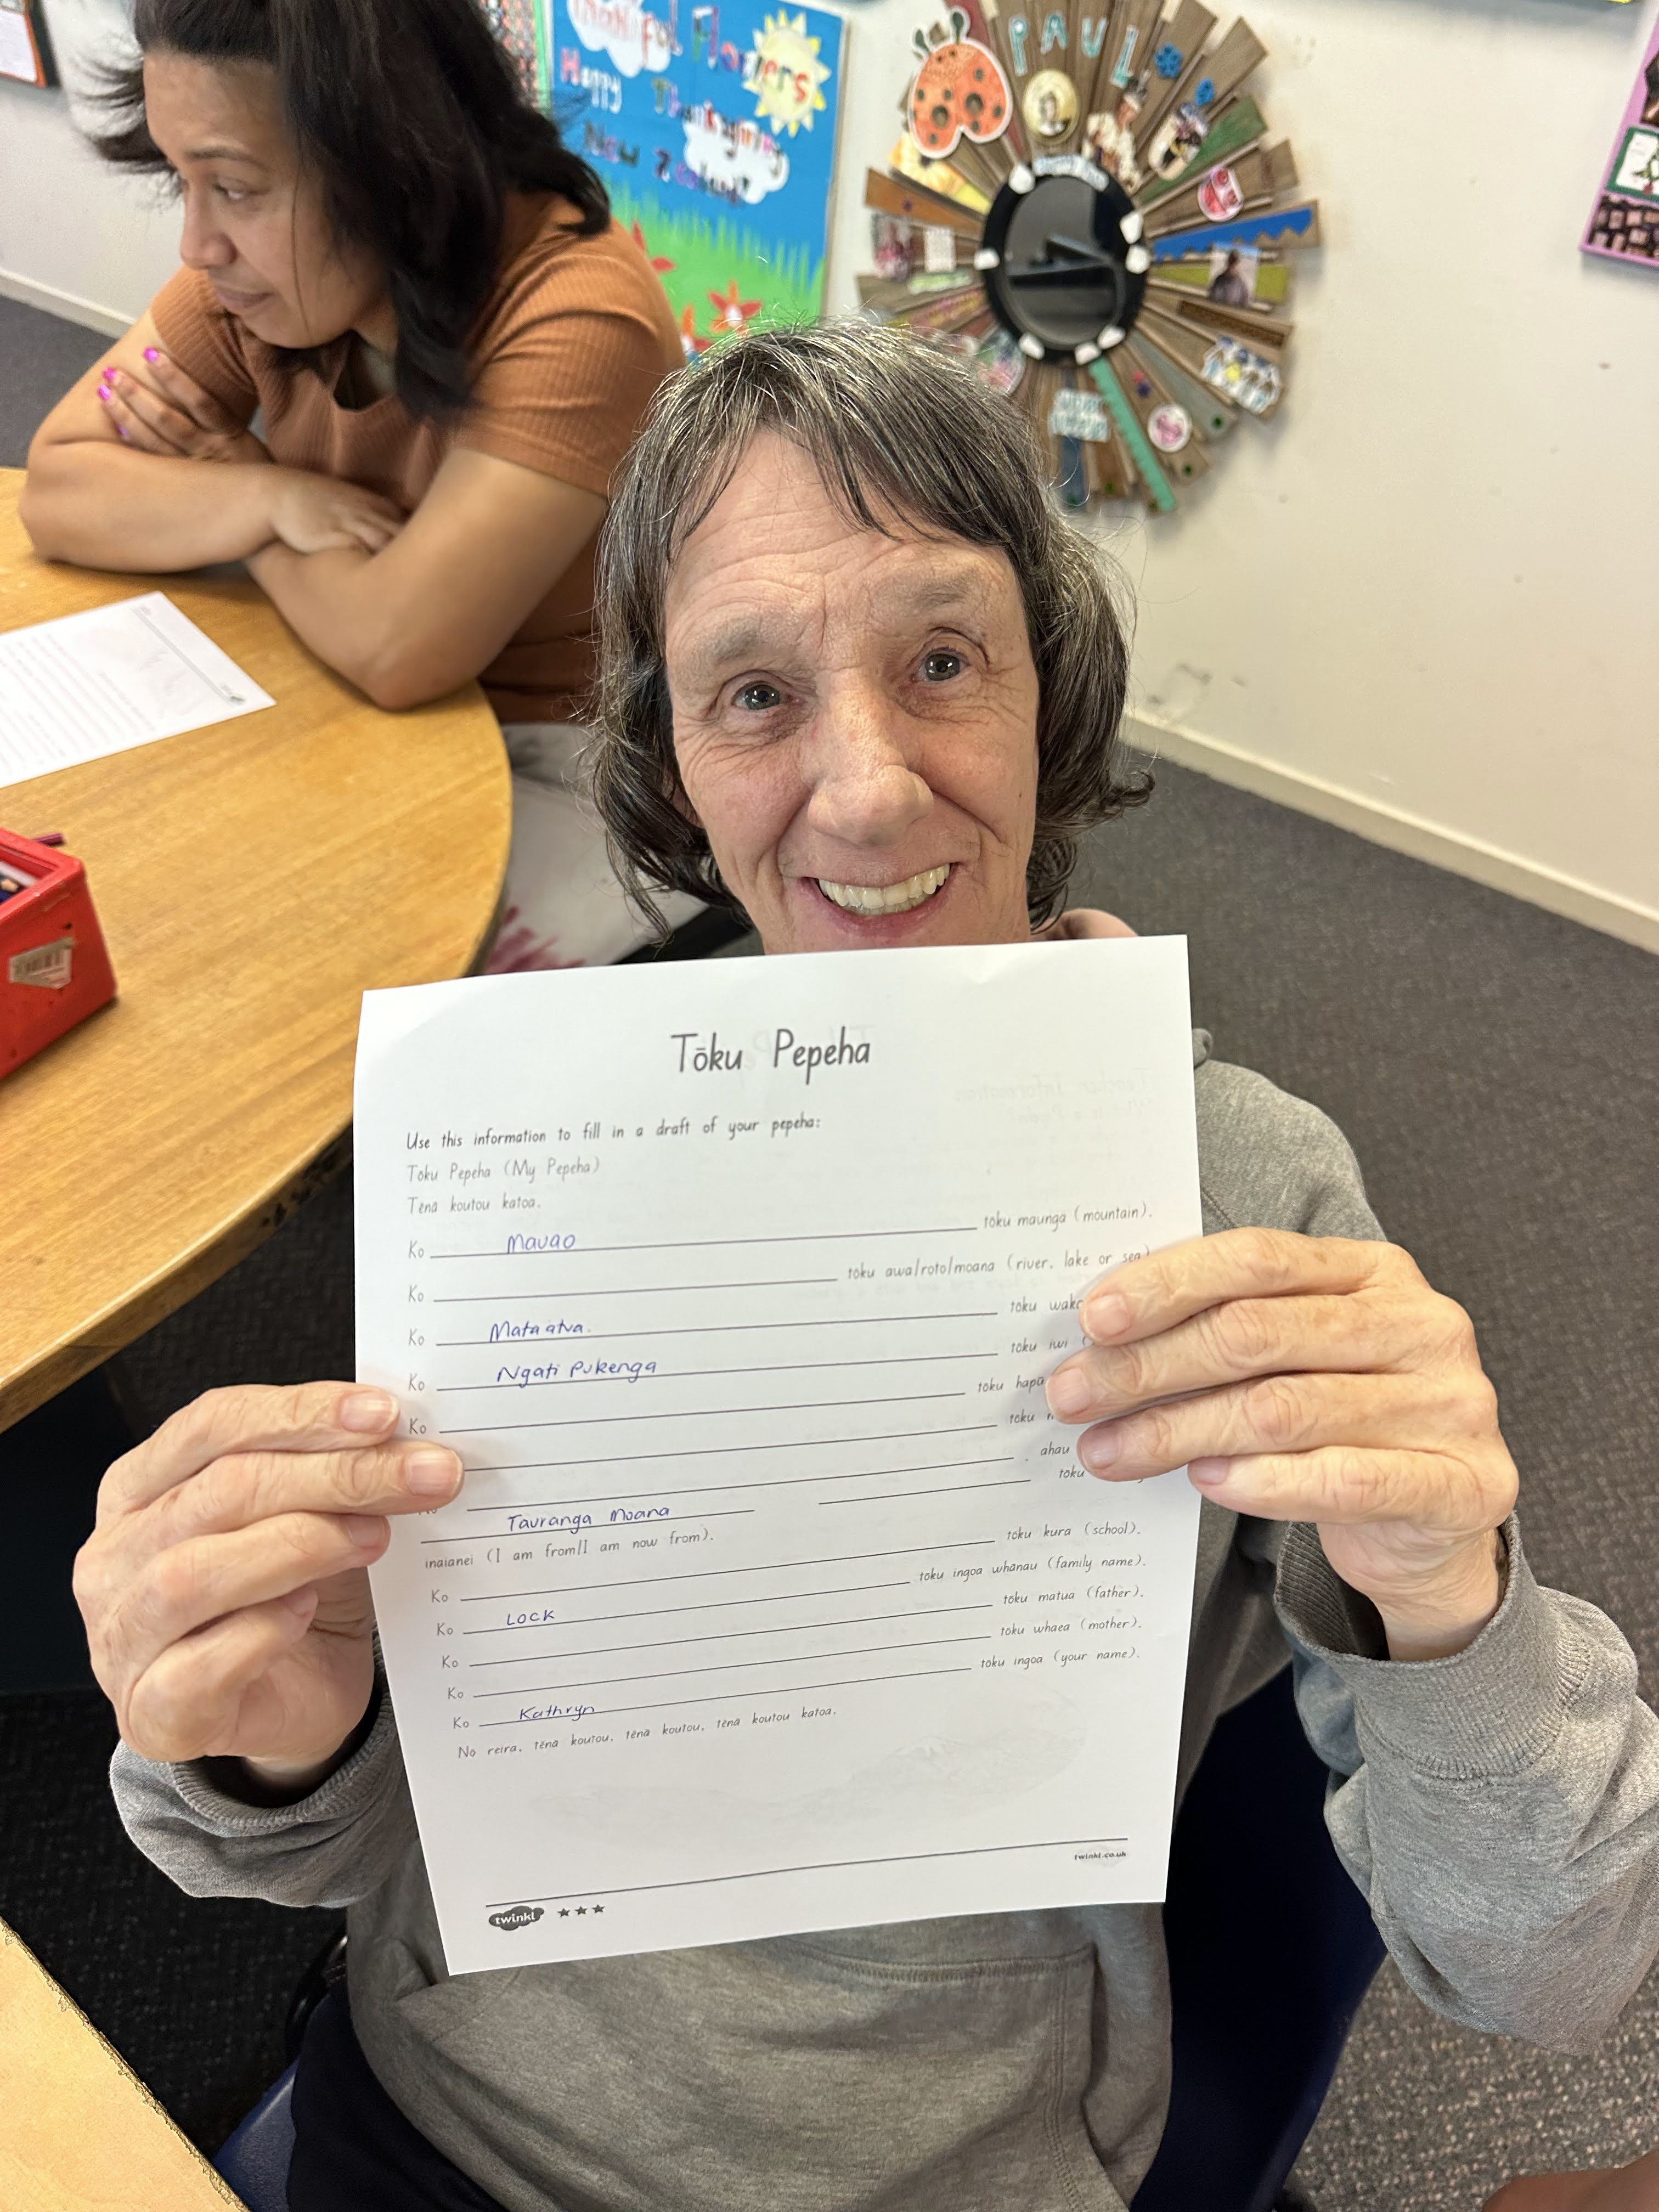 Thankful Flowers
Happy Thanksgiving
New Zealand
PAUL
Tōku Pepeha
Use this information to fill in a draft of your pepeha:
Tōku Pepeha (My Pepeha)
Tēnā koutou katoa.
Ko Mauao tōku maunga (mountain).
Ko tōku awa/roto/moana (river, lake or sea)
Ko Mataatua. tōku
Ko Ngati Pukenga tōku iwi
Ko tōku
tōku
, ahau
Tauranga Moana tōku
ināianei (I am from/I am now from).
Ko tōku kura (school).
Ko Lock tōku ingoa whānau (family name).
Ko tōku matua (father).
Ko tōku whaea (mother).
Ko Kathryn tōku ingoa (your name).
No reira, tēnā koutou, tēnā koutou, tēnā koutou katoa.
twinkl.co.uk
twinkl